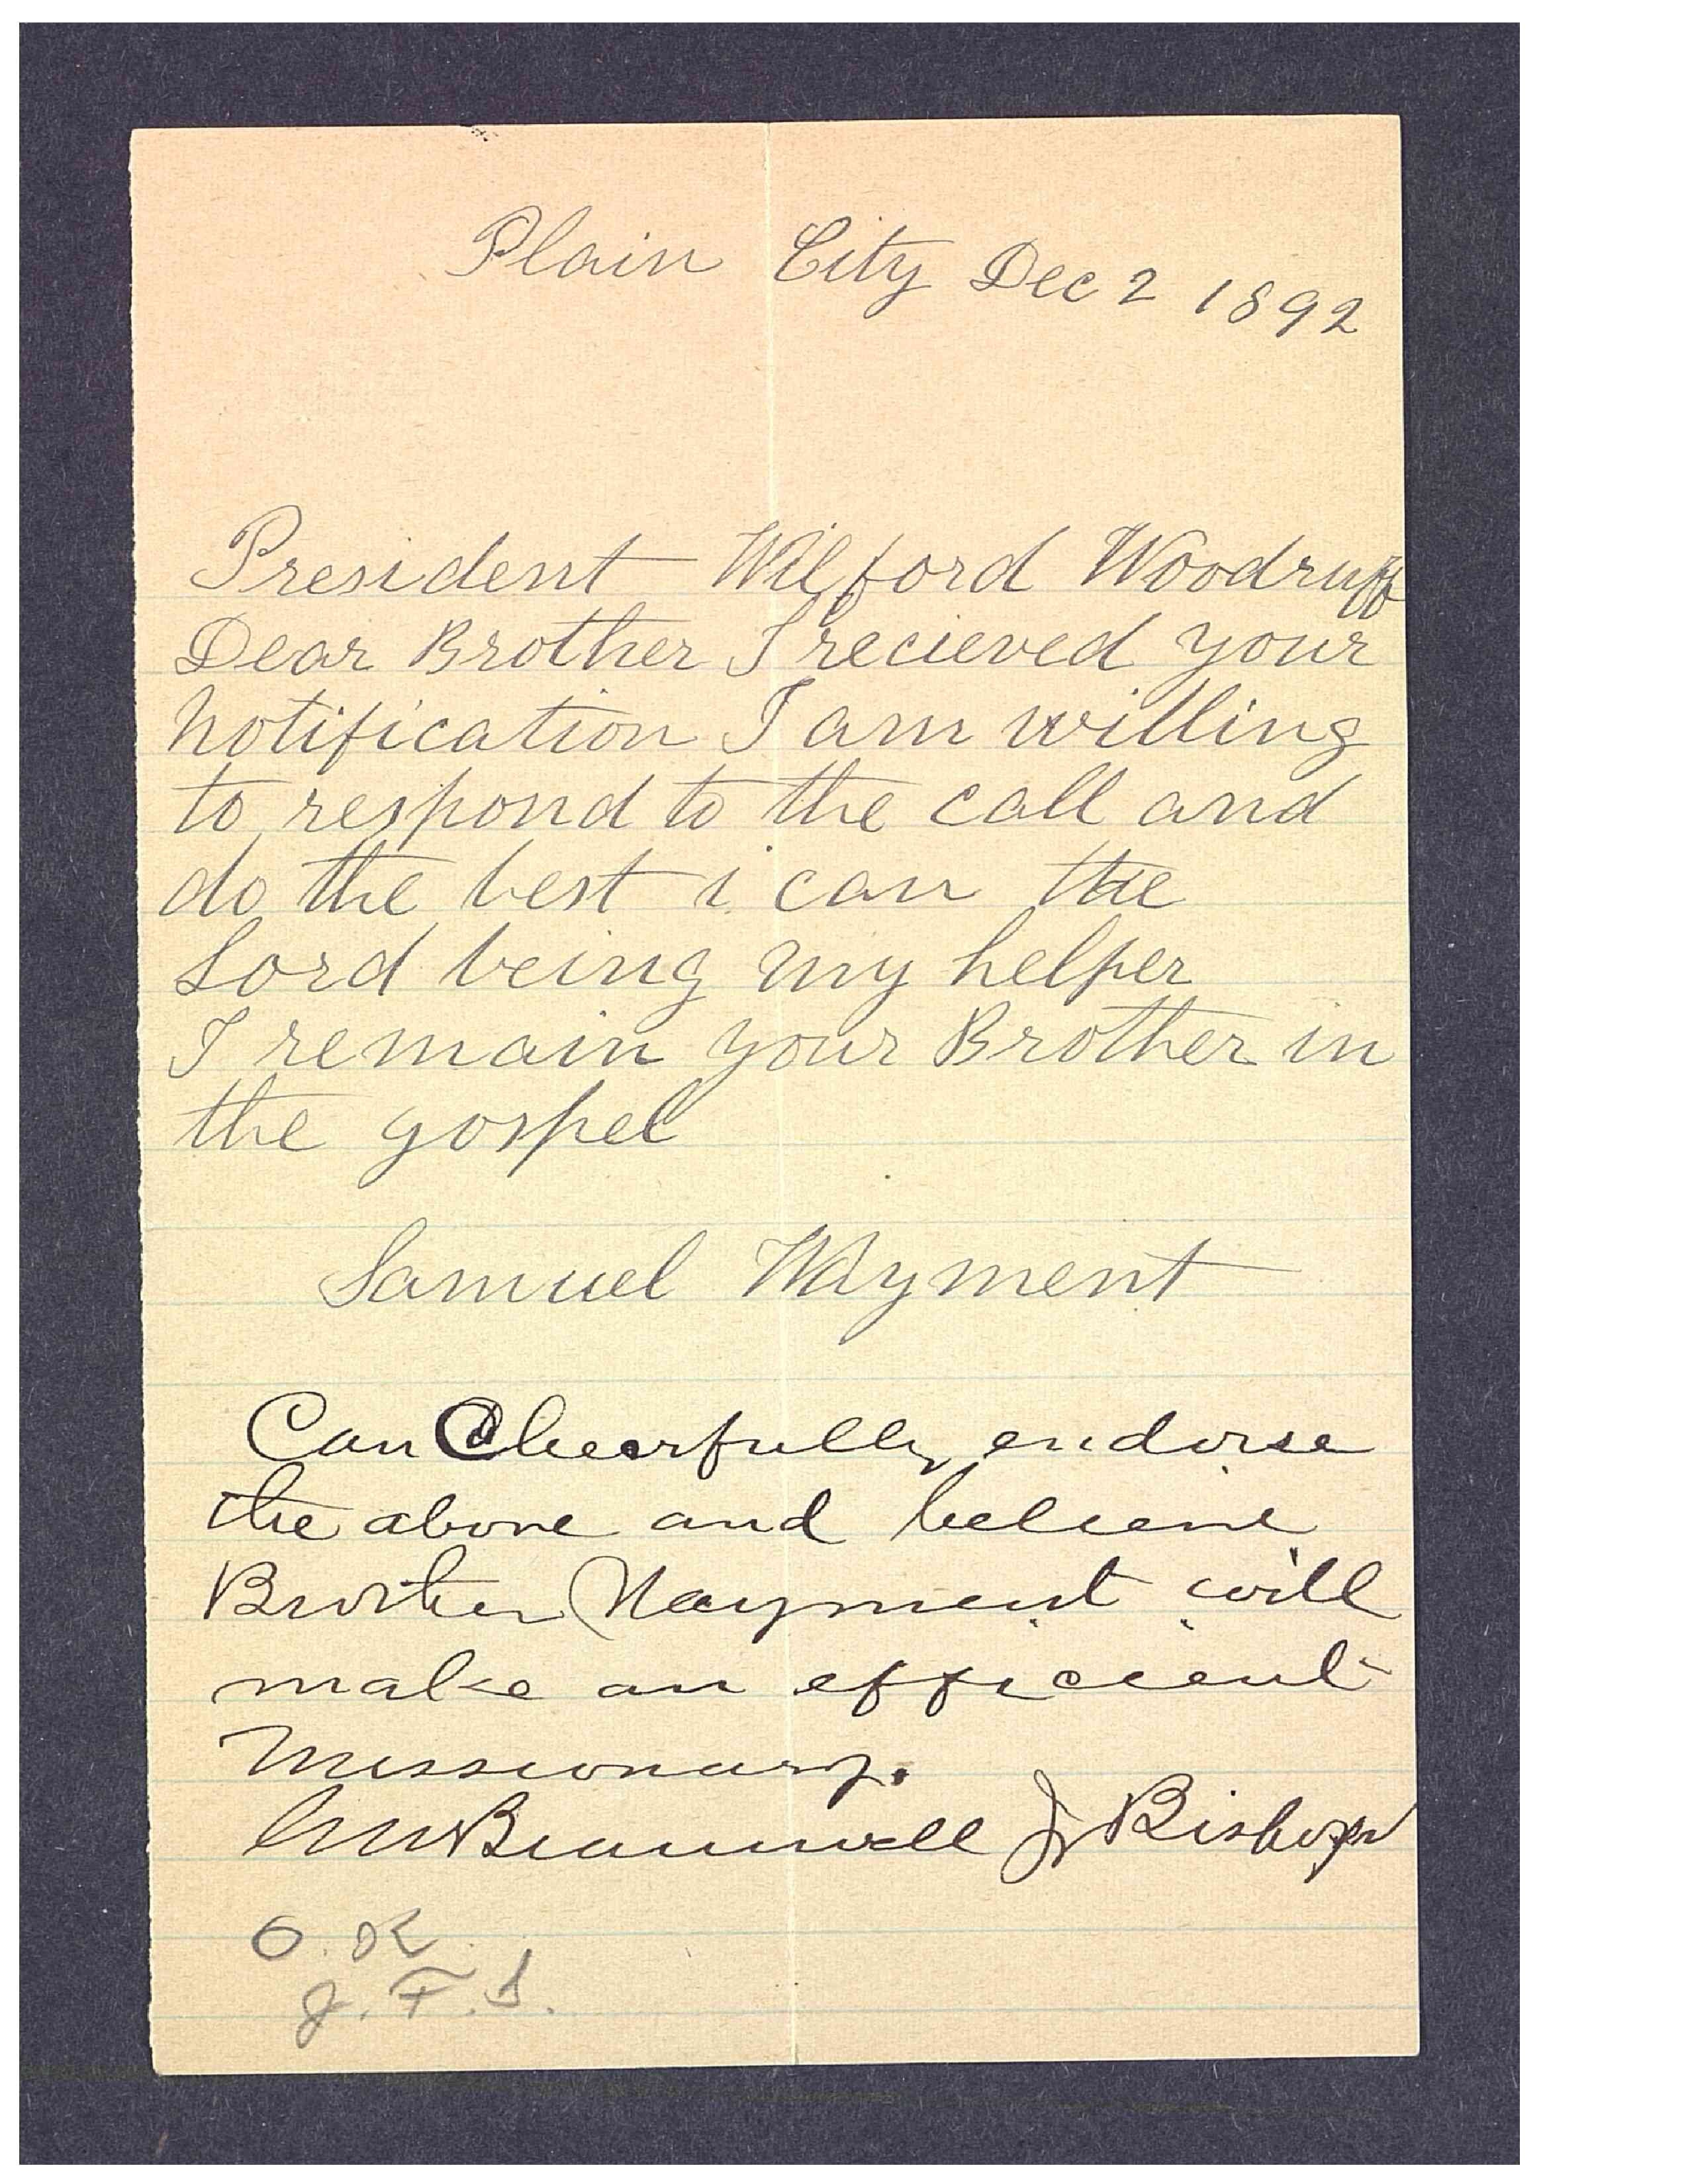 Plain City Dec 2 1892
President Wilford Woodruff
Dear Brother I recieved your
notification I am willing
to respond to the call and
do the best i can the
Lord being my helper
I remain your Brother in
the gospel
Samuel Wayment
Can Cheerfully endorse
the above and believe
Brother Wayment will
make an efficient
Missionary.
Bramwell Jr Bishop
O. K.
J. F. S.